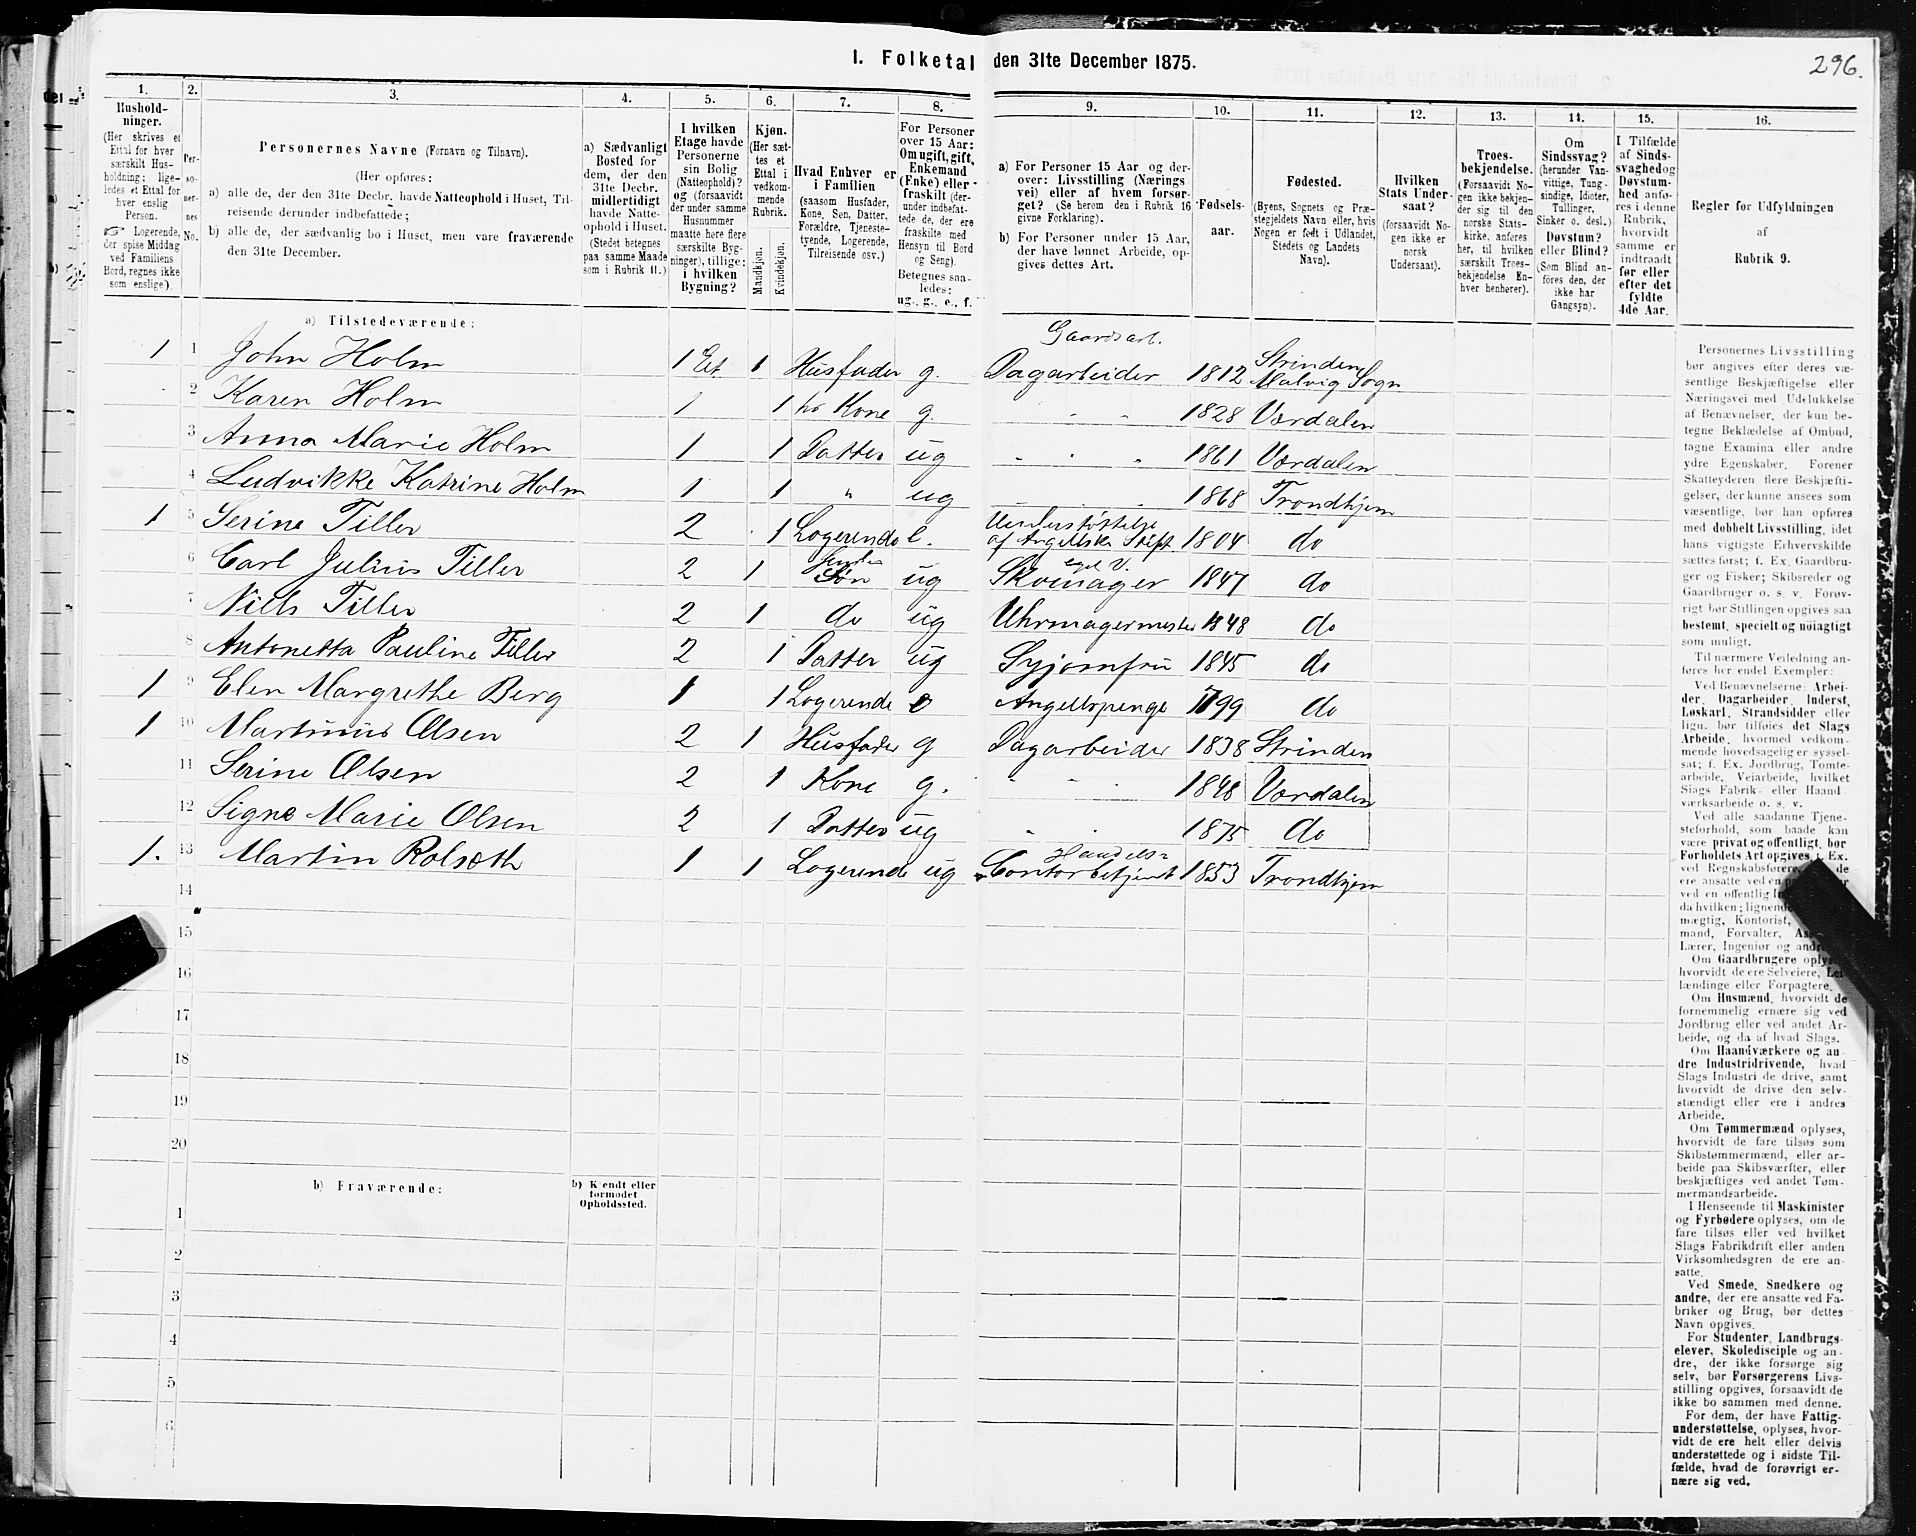 I. Folketal den 31te December 1875.
296.
1. 2. 3. 4. 5. 6. 7. 8. 9. 10. 11. 12. 13. 14. 15. 16.
Hushold-
ninger.
(Her skrives et
Ettal for hver
særskilt Hus-
holdning; lige-
ledes et Ettal for
hver enslig
Person.
☞ Logerende,
der spise Middag
ved Familiens
Bord, regnes ikke
som enslige).
Per-
so-
ner-
nes
No.
Personernes Navne (Fornavn og Tilnavn).
(Her opføres:
a) alle de, der den 31te Decbr. havde Natteophold i Huset, Til-
reisende derunder indbefattede;
b) alle de, der sædvanlig bo i Huset, men vare fraværende
den 31te December.
a) Sædvanligt
Bosted for
dem, der den
31te Decbr.
midlertidigt
havde Natte-
ophold i Huset.
(Stedet betegnes
paa samme Maade
som i Rubrik 11.)
I hvilken
Etage havde
Personerne
sin Bolig
(Natteophold)?
og (forsaavidt
der under samme
Husnummer
maatte here flere
særskilte Byg-
ninger), tillige:
i hvilken
Bygning?
Kjøn.
(Her sæt-
tes et
Ettal i
vedkom-
mende
Rubrik.
Mandkjøn.
Kvindekjøn.
Hvad Enhver er
i Familien
(saasom Husfader,
Kone, Søn, Datter,
Forældre, Tjeneste-
tyende, Logerende,
Tilreisende osv.)
For Personer
over 15 Aar:
Om ugift, gift,
Enkemand
(Enke) eller
fraskilt (der-
under indbefat-
tede de, der ere
fraskilte med
Hensyn til Bord
og Seng).
Betegnes saa-
ledes:
ug., g., e., f.
a) For Personer 15 Aar og der-
over: Livsstilling (Nærings-
vei) eller af hvem forsør-
get? (Se herom den i Rubrik 16
givne Forklaring).
b) For Personer under 15 Aar,
der have lønnet Arbeide, op-
gives dettes Art.
Fødsels-
aar.
Fødested.
(Byens, Sognets og Præ-
stegjeldets Navn eller, hvis
Nogen er født i Udlandet,
Stedets og Landets
Navn).
Hvilken
Stats Under-
saat?
(forsaavidt No-
gen ikke er
norsk
Undersaat).
Troes-
bekjendelse.
(Forsaavidt No-
gen ikke bekjen-
der sig til den
norske Stats-
kirke, anføres
her, til hvilken
særskilt Troes-
bekjendelse En-
hver henhører).
Om
Sindssvag?
(herunder Van-
vittige, Tung-
sindige, Idioter,
Tullinger,
Sinker o. desl.)
Døvstum?
eller Blind?
(Som Blind an-
føres den, der
ikke har
Gangsyn).
I Tilfælde
af Sinds-
svaghed og
Døvstum-
hed anfø-
res i denne
Rubrik,
hvorvidt
samme er
indtraadt
før eller
efter det
fyldte
4de Aar.
Regler for Udfyldningen
af
Rubrik 9.
a) Tilstedeværende:
1 1 John Holm 1 Et. 1 Husfader g. Gaardsarb. Dagarbeider 1812 Strinden Malvig Sogn
2 Karen Holm 1 1 hs Kone g. " " 1828 Værdalen
3 Anna Marie Holm 1 1 Datter ug " " " 1861 Værdalen
4 Ludvikke Katrine Holm 1 1 " ug 1868 Trondhjem
1 5 Serine Tiller 2 1 Logerende e. Understøttelse af Angellske Stift. 1804 do
6 Carl Julius Tiller 2 1 Søn ug Skomager 1847 do
7 Niels Tiller 2 1 do ug Uhrmagermester 1848 do
8 Antonetta Pauline Tiller 2 1 Datter ug Syjomfru 1845 do
1 9 Elen Margrethe Berg 1 1 Logerende e Angellspenge 1799 do
1 10 Martinus Olsen 2 1 Husfader g Dagarbeider 1838 Strinden
11 Serine Olsen 2 1 Kone g. " " 1848 Værdalen
12 Signe Marie Olsen 2 1 Datter ug " " 1875 do
1. 13 Martin Rolseth 1 1 Logerende ug Handels- Contorbetjent 1853 Trondhjem
14
15
16
17
18
19
20
b) Fraværende:
b) Kjendt eller
formodet
Opholdssted.
1
2
3
4
5
6
Personernes Livsstilling
bør angives efter deres væ-
sentlige Beskjæftigelse eller
Næringsvei med Udelukkelse
af Benævnelser, der kun be-
tegne Beklædelse af Ombud,
tagne Examina eller andre
ydre Egenskaber. Forener
Skatteyderen flere Beskjæfti-
gelser, der kunne ansees som
væsentlige, bør han opføres
med dobbelt Livsstilling, idet
hans vigtigste Erhvervskilde
sættes først; f. Ex. Gaardbru-
ger og Fisker; Skibsreder og
Gaardbruger o. s. v. Forøv-
rigt bør Stillingen opgives saa
bestemt, specielt og nøiagtigt
som muligt.
Til nærmere Veiledning an-
føres her endel Exempler:
Ved Benævnelserne: Arbei-
der, Dagarbeider, Inderst,
Løskarl, Strandsidder eller
lign. bør tilføies det Slags
Arbeide, hvormed vedkom-
mende hovedsagelig er syssel-
sat; f. Ex. Jordbrug, Tomte-
arbeide, Veiarbeide, hvilket
Slags Fabrik- eller Haand-
værksarbeide o. s. v.
Ved alle saadanne Tjene-
steforhold, som baade kan
være privat og offentligt, bør
Forholdets Art opgives, f. Ex.
ved Regnskabsførere,
ere ansatte ved en
ved en offentlig
da hvilken; lignende
mægtig, Kontorist,
mand, Forvalter,
Lærer, Ingeniør og andre.
Om Gaardbrugere oplyses,
hvorvidt de ere Selveiere, Lei-
lændinge eller Forpagtere.
Om Husmænd, hvorvidt de
fornemmelig ernære sig ved
Jordbrug eller ved andet Ar-
beide, og da af hvad Slags.
Om Haandværkere og an-
dre Industridrivende, hvad
Slags Industri de drive, samt
hvorvidt de drive den selv-
stændigt eller ere i andres
Arbeide.
Om Tømmermænd oplyses,
hvorvidt de fare tilsøs som
Skibstømmermænd, eller ar-
beide paa Skibsværfter, eller
beskjæftiges ved andet Tøm-
mermandsarbeide.
I Henseende til Maskinister
og Fyrbødere oplyses, om de
fare tilsøs eller ved hvilket
Slags Fabrikdrift eller anden
Virksomhedsgren de ere an-
satte.
Ved Smede, Snedkere og
andre, der ere ansatte ved Fa-
briker og Brug, bør dettes
Navn opgives.
For Studenter, Landbrugs-
elever, Skoledisciple og an-
dre, der ikke forsørge sig
selv, bør Forsørgerens Livs-
stilling opgives, forsaavidt de
ikke bo sammen med denne.
For dem, der have Fattig-
understøttelse, oplyses, hvor-
vidt de ere helt eller delvis
understøttede og i sidste Til-
fælde, hvad de forøvrigt er-
nære sig ved.